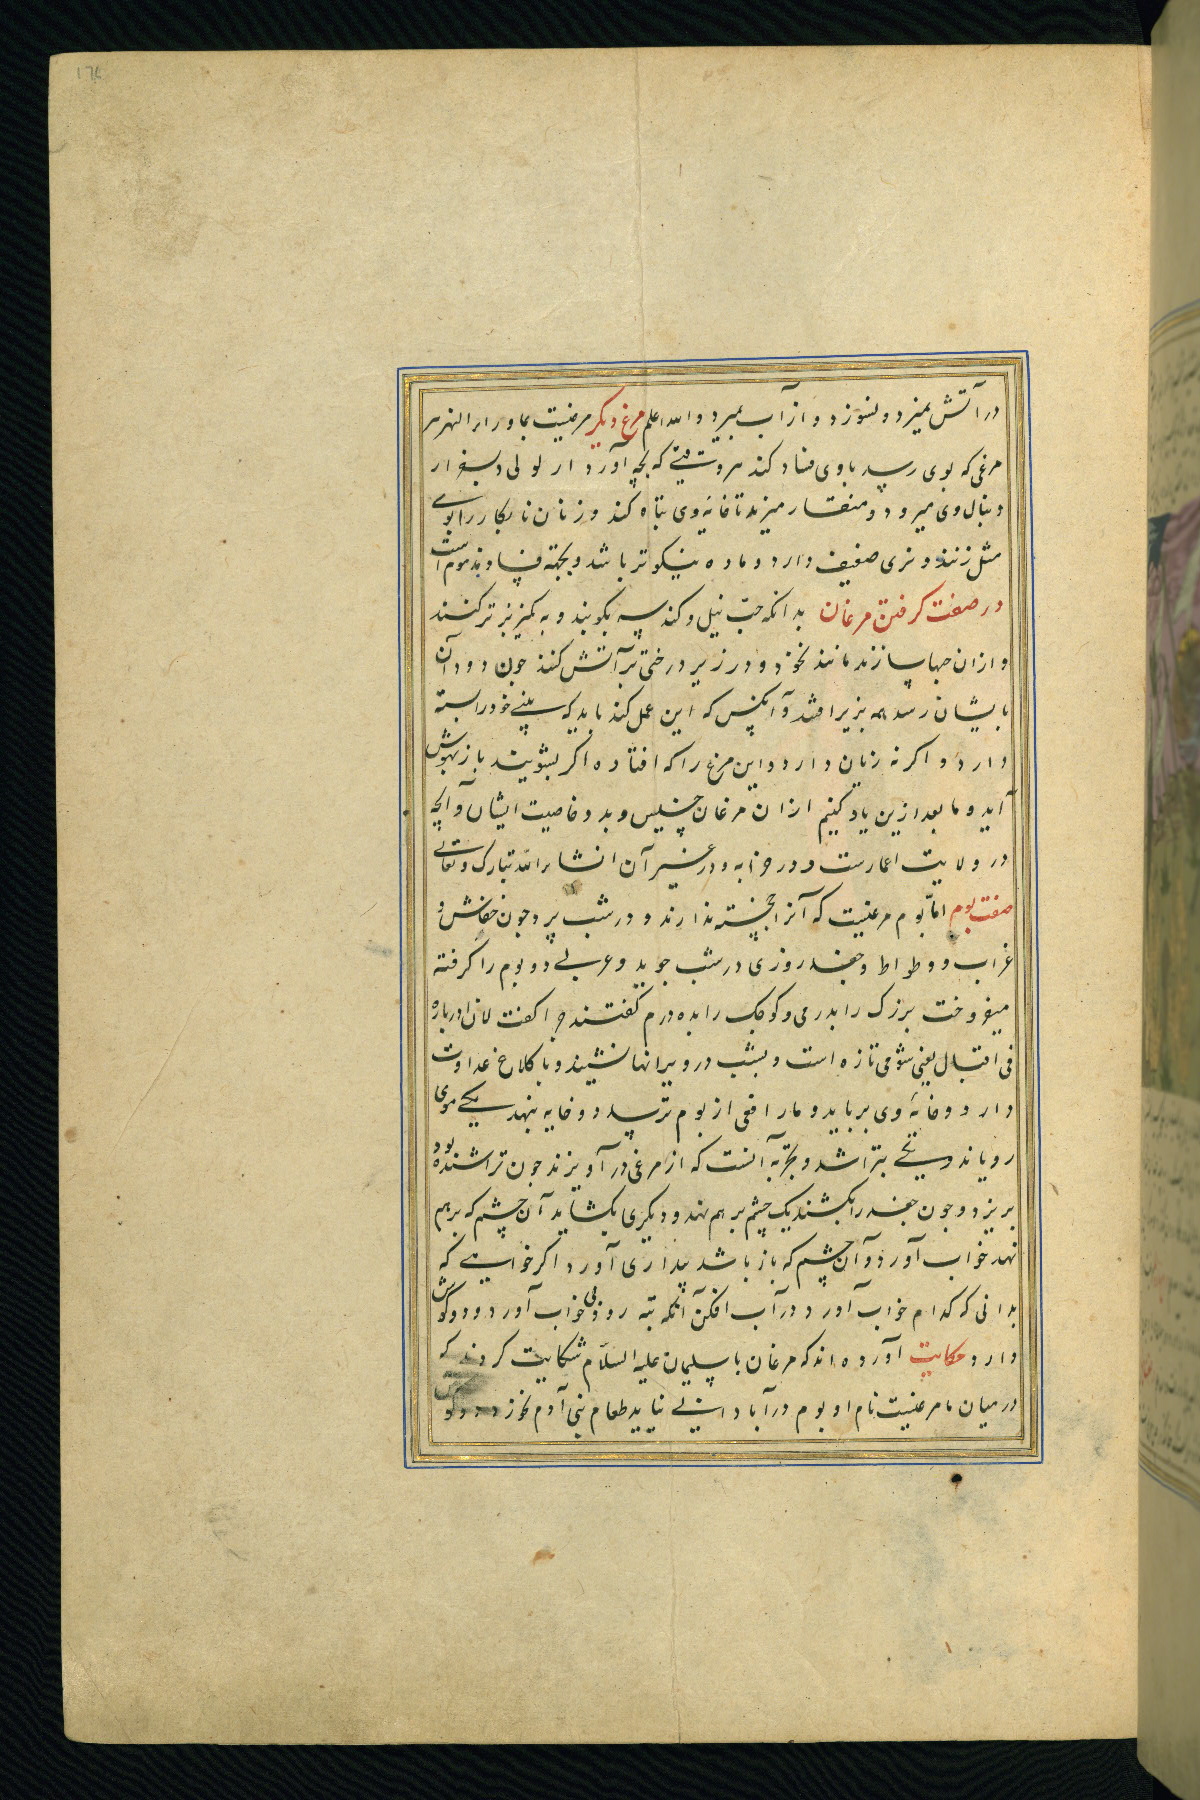 در آتش نمیرد و نسوزد و از آب بمیرد والله اعلم مرغ دیگر مرغیست بماوراالنهر هر
مرغی که بوی رسد باوی فساد کند هر وقتی که بچه آورد
دنبال وی میرود و منقار میزند تا خانهٔ وی تباه کند و زنان نابکار را بوی
مثل زنند و نری ضعیف دارد و ماده نیکوتر باشد و
در صفت کرفتن مرغان بدانکه حبّ نیل و کند سه بکوبند و به کمیز بز تر کنند
و ازان حبها سازند مانند نخود و در زیر درختی بر آتش کنند جون دود آن
بایشان رسد همه بزیر افتد و آنکس که این عمل کند باید که بینی خود را بسته
دارد و اکر نه زیان دارد و این مرغ را که افتاده اکر بشویند باز بهوش
آید و ما بعد ازین یاد کنیم از ان مرغان خسیس و بد و خاصیت ایشان و آنچه
در ولایت اعمارست و در خرابه و در غیر آن انشاءالله تبارک و تعالی
صفت بوم امّا بوم مرغیست که آنرا خجسته ندارند و در شب پرد جون خفاش و
غراب و وطواط و جغد روزی در شب جوید و عربی دو بوم را کرفته
میفروخت بزرک را بدرمی و کوجک را بده درم کفتند چرا کفت لان ادباره
فی اقبال یعنی شومی تازه است و بشب در ویرانها نشیند و با کلاغ عداوت
دارد و خانهٔ وی برباید و مار افعی از بوم ترسد و دو خایه بنهد یکی موی
رویاند و یکی بتراشد و تجربه آنست که از مرغی در آویزند جون تراشنده بود
بریزد و جون جغد را بکشند یک چشم بر هم نهد و دیکری بکشاید آن چشم که بر هم
نهد خواب آورد و آن چشم که باز باشد بیداری آورد اکر خواهی که
بدانی که کدام خواب آورد در آب افکن آنکه بته رود بی خوابی آورد و دو کوش
دارد و حکایت آورده اند که مرغان با سلیمان علیه السلام شکایت کردند که
در میان ما مرغیست نام او بوم در آبادانی نیاید طعام بنی آدم نخورد